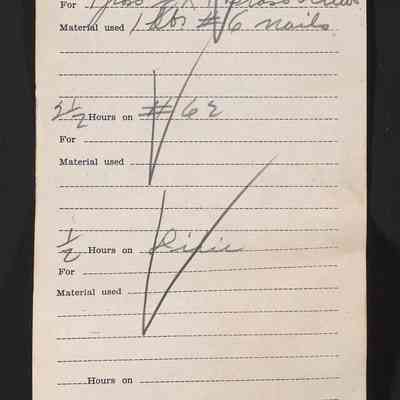 For 1 Gross
Material used 1 lbs #6 nails
2½ Hours on #62
For
Material used
½ Hours on
For
Material used
Hours on